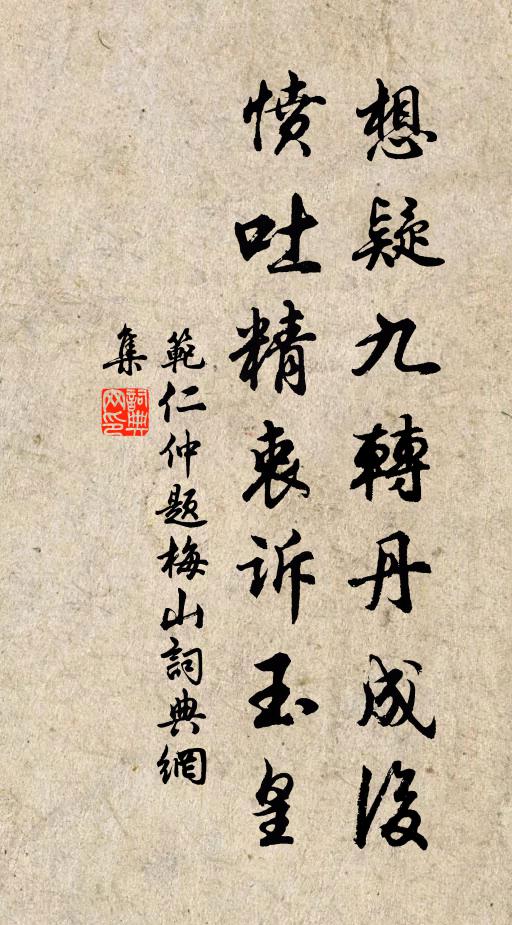 想疑九轉丹成後
憤吐精衷訴玉皇
範仁仲題梅山詞典網
集
詞典網印